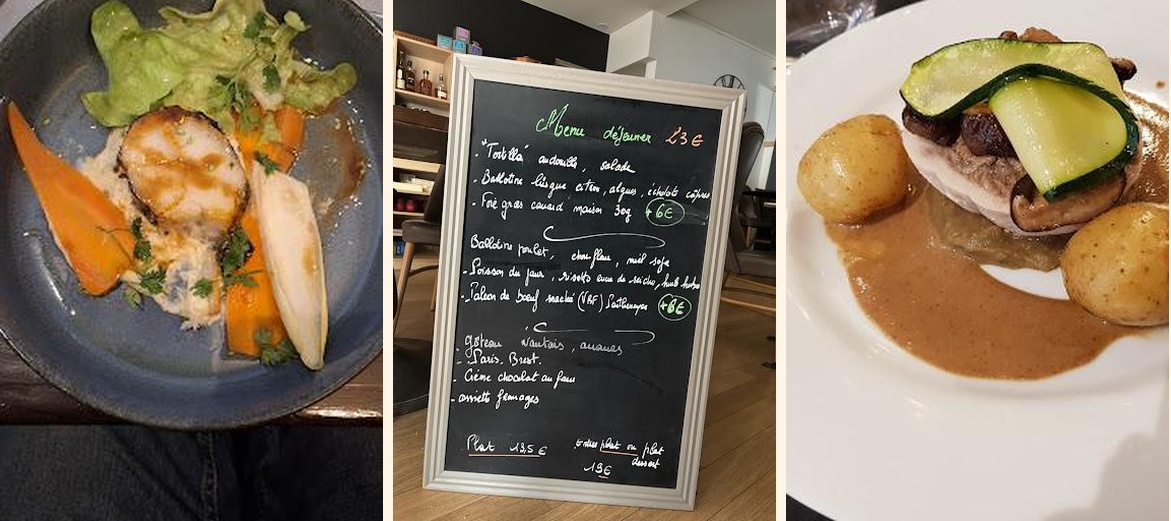 Menu déjeuner 23€
- "Tortilla" andouille, salade
- Ballotine lisque citron, algues, échalote câpres
- Foie gras canard maison 30g +6€
Ballotine poulet, chou fleur, miel soja
- Poisson du jour, risotto
- Paleron de boeuf (VBF) Parthenaise +8€
- gâteau Nantais, ananas
- Paris Brest.
- Crème chocolat au four
- assiette fromages
Plat 13.5€
Entrée plat ou plat
dessert
19€